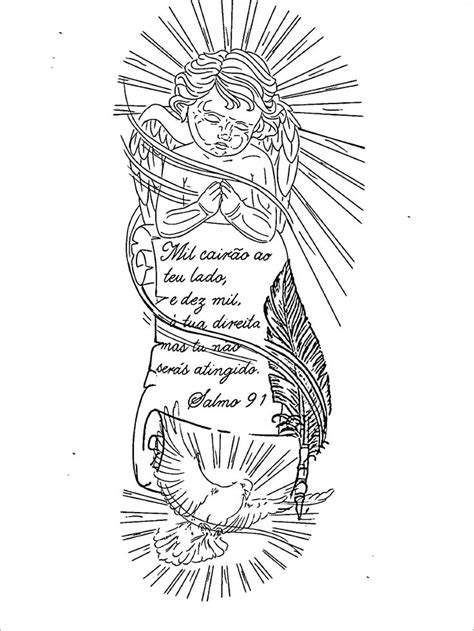 Mil cairão ao
teu lado,
e dez mil,
á tua direita
mas tu não
serás atingido.
Salmo 91